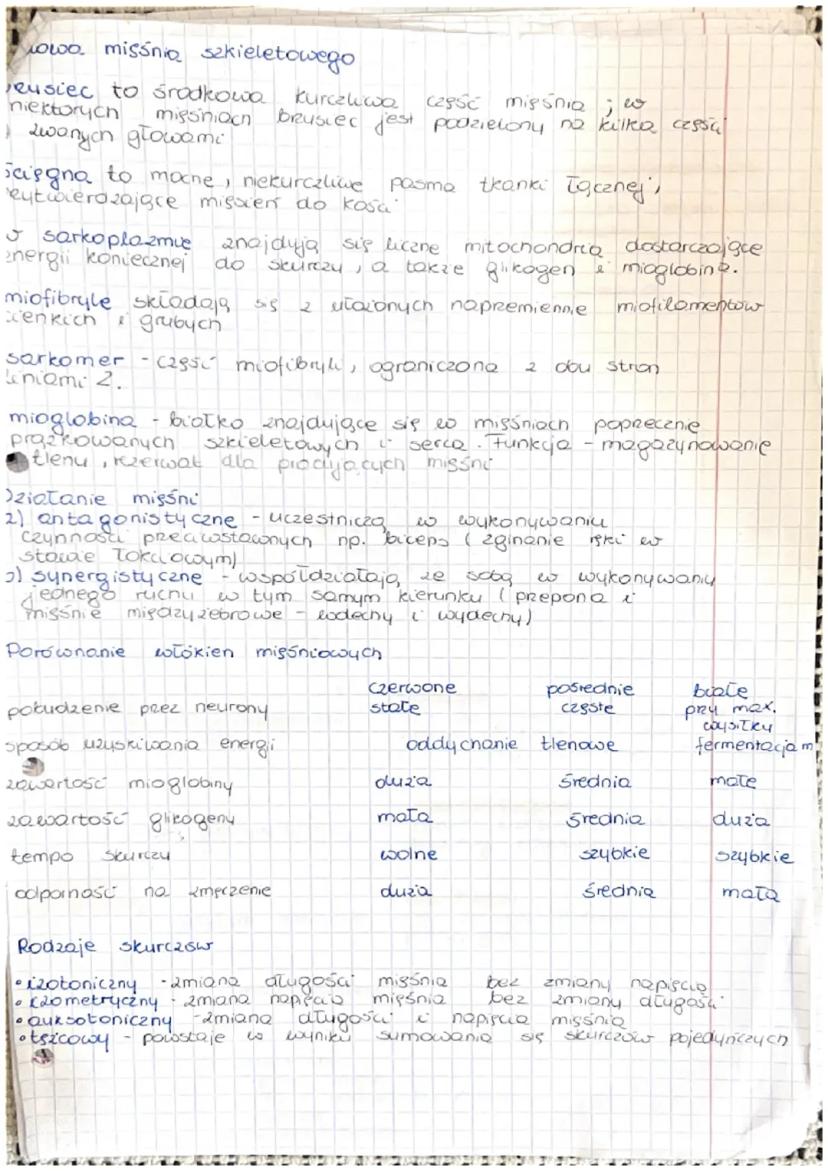 owa mięśnia szkieletowego
eusiec to środkowa kurczliwa część mięśnia ; w
niektorych mięśniach brzusiec jest podzielony na kilka części
zwanych głowami
ścięgna to mocne, niekurczliwe pasma tkanki łącznej,
eytwierdzające mięsień do kości
w sarkoplazmie znajdują się liczne mitochondria dostarczające
energii koniecznej do skurczy, a także glikogen i mioglobinę.
miofibryle składają się z ułożonych naprzemiennie miofilamentów
cienkich i grubych
sarkomer - część miofibryli, ograniczona z obu stron
liniami Z.
mioglobina - białko znajdujące się w mięśniach poprzecznie
prążkowanych szkieletowych i serca. Funkcja - magazynowanie
tlenu, rezerwat dla mięśni
Działanie mięśni
antagonistyczne - uczestniczą w wykonywaniu
czynności przeciwstawnych np. biceps (zginanie ręki w
stawie łokciowym)
synergistyczne - współdziałają ze sobą w wykonywaniu
jednego ruchu w tym samym kierunku (przepona i
mięśnie międzyżebrowe - wdechy i wydechy)
Porównanie włókien mięśniowych
czerwone pośrednie białe
pobudzenie przez neurony stałe częste przy max.
wysiłku
sposób uzyskiwania energi oddychanie tlenowe fermentacja m
zawartość mioglobiny duża średnia małe
zawartość glikogenu mała średnia duża
tempo skurczu wolne szybkie szybkie
odporność na zmęczenie duża średnia mała
Rodzaje skurczów
• izotoniczny - zmiana długości mięśnia bez zmiany napięcia
• izometryczny - zmiana napięcia mięśnia bez zmiany długości
• auksotoniczny - zmiana długości i napięcia mięśnia
• tężcowy - powstaje w wyniku sumowania się skurczów pojedynczych